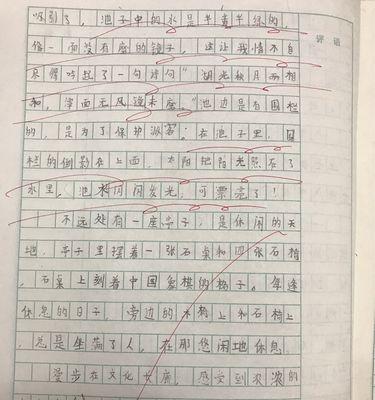 吸引了，池子中的水是半青半绿的，
像一面没有磨的镜子，这让我情不自
禁得哼起了一句诗句"湖光秋月两相
和，潭面无风镜未磨。"池边是有围栏
的，是为了保护游客；在池子里，围
栏的倒影在上面，太阳把阳光照在了
水里，池水闪闪发光，可票亮了！
不远处有一座亭子，是休闲的天
地。亭子里摆着一张石桌和四张石椅
，石桌上刻着中国象棋的格子。每逢
休息的日子，旁边的木椅上和石椅上
，总是坐满了人，在那悠闲地休息。
漫步在文化长廊，感受到浓浓的
评语